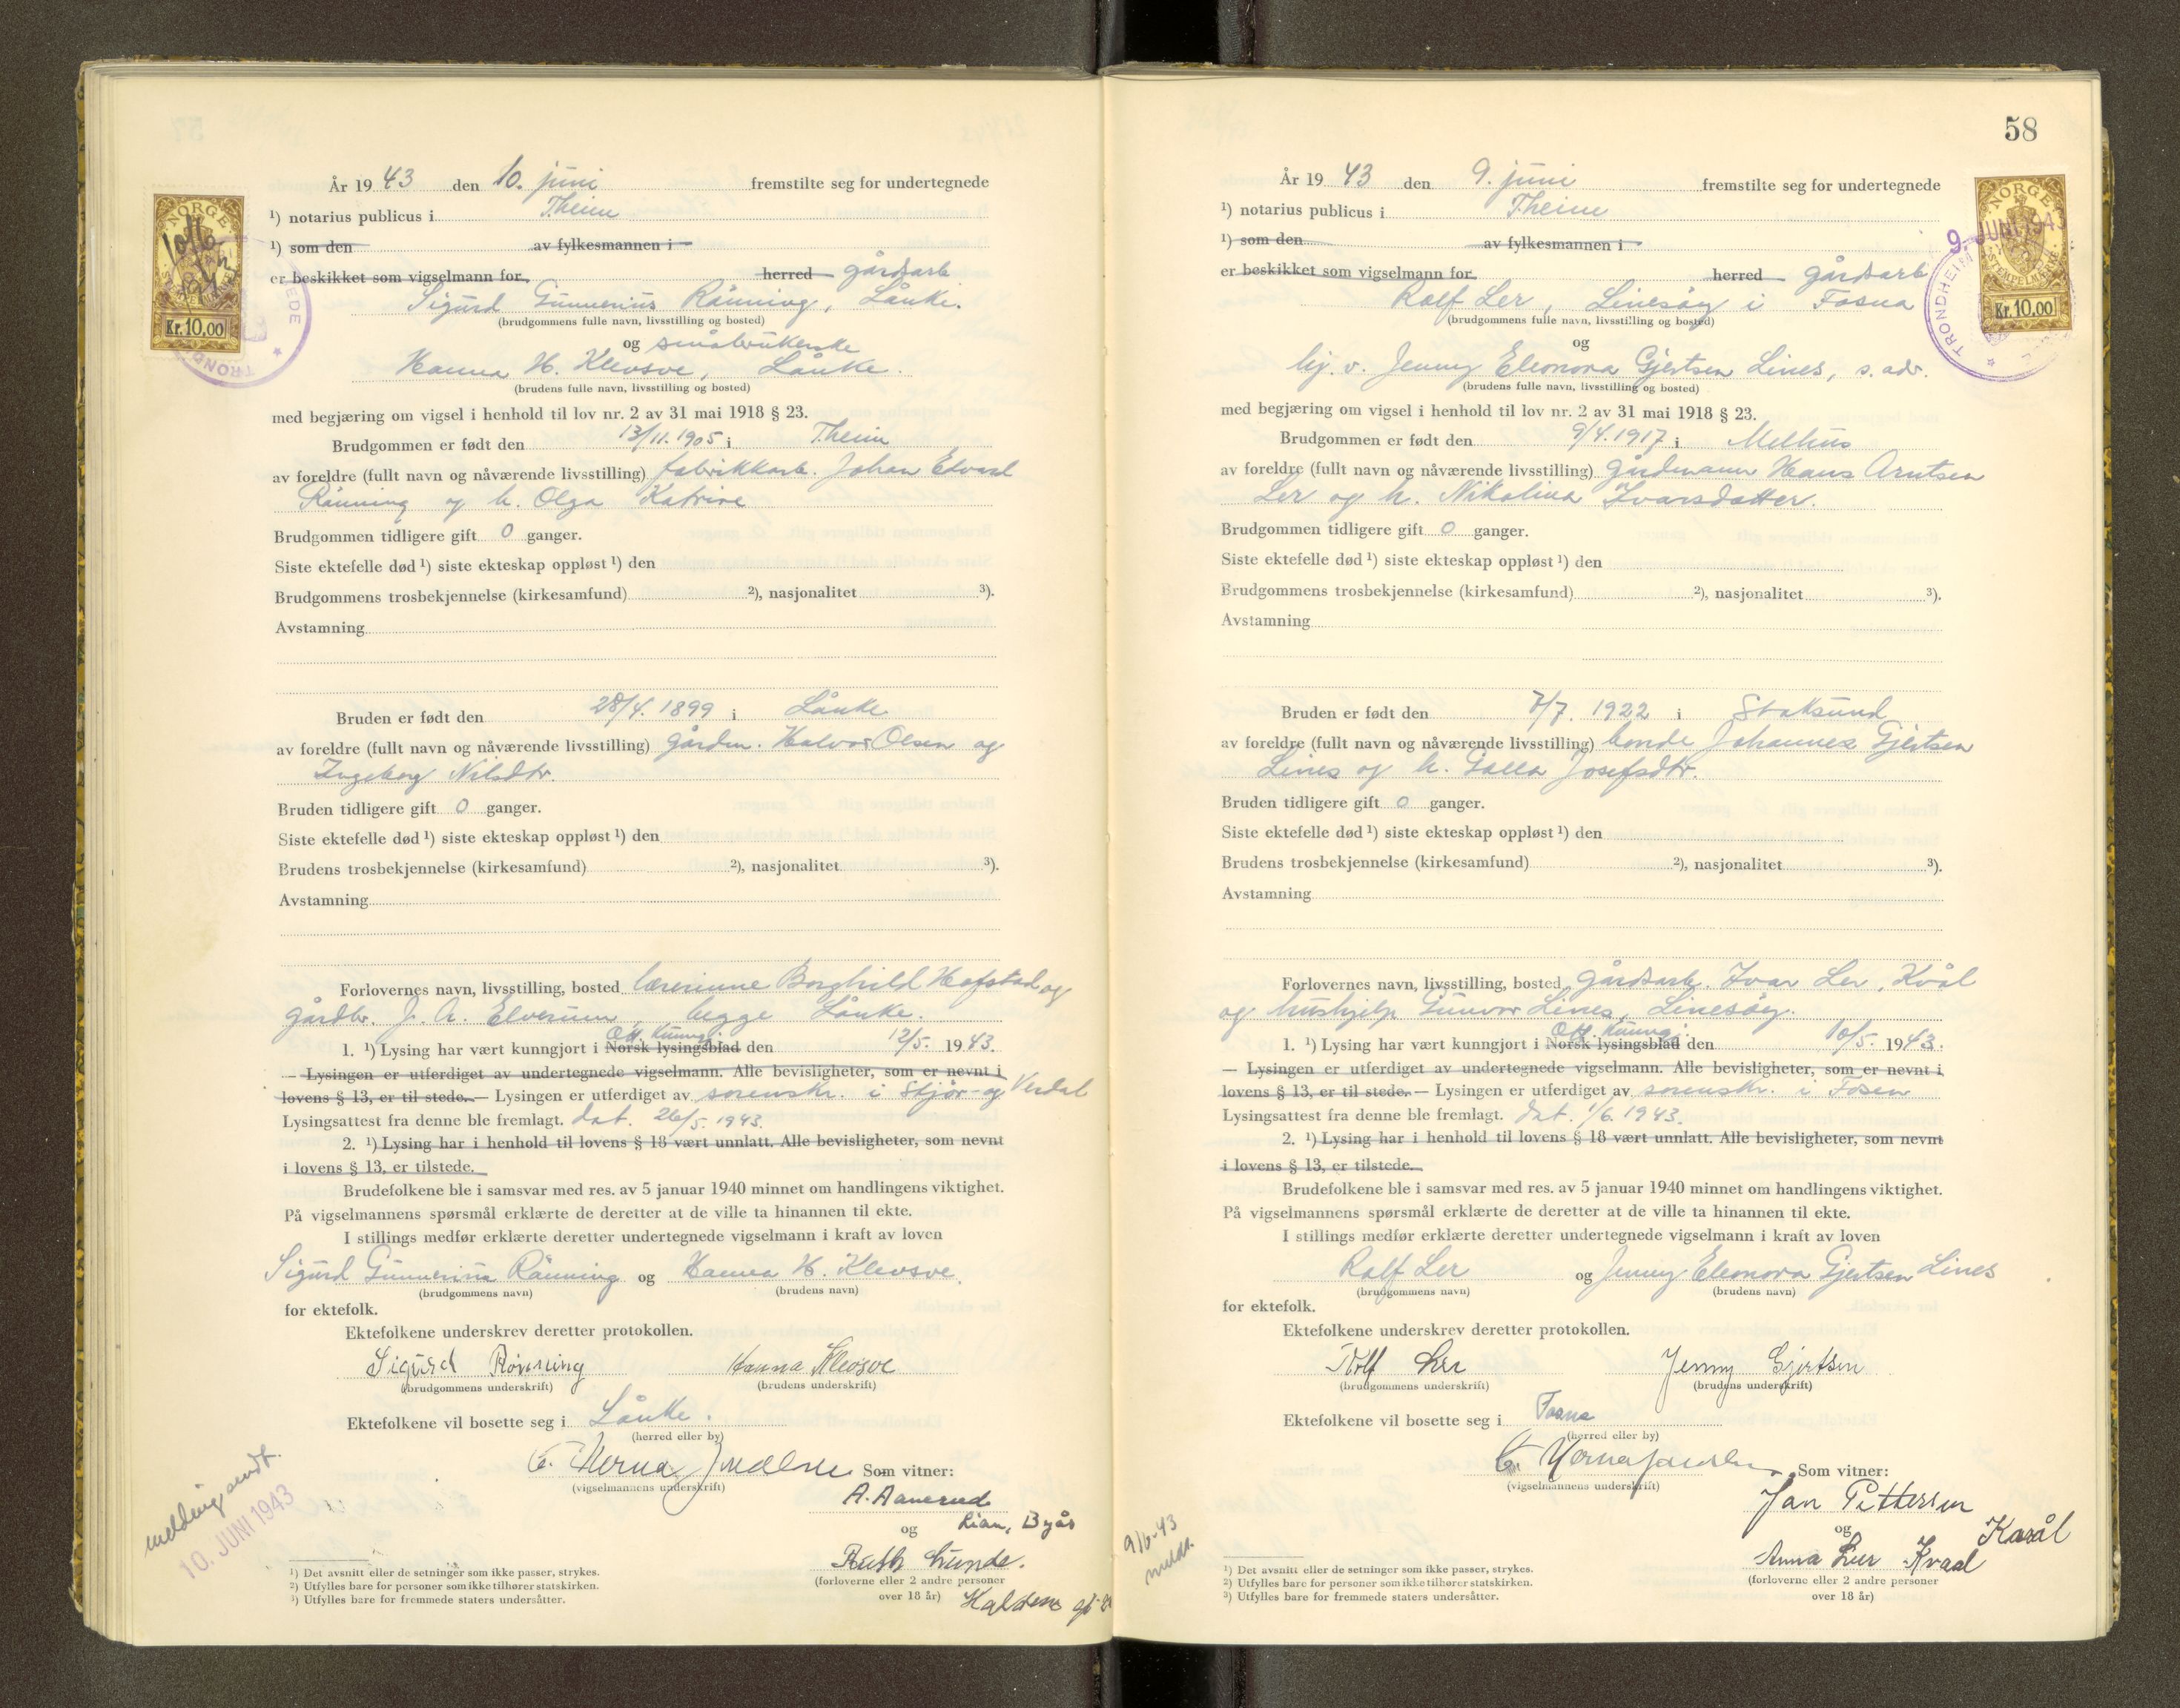 År 19 43 den 10. juni fremstilte seg for undertegnede
¹) notarius publicus i T.heim
¹) som den av fylkesmannen i
er beskikket som vigselmann for herred gårdsarb
Sigurd Gunnerius Rånning, Lånke.
(brudgommens fulle navn, livsstilling og bosted)
og småbrukerske
Hanna H. Klevsve, Lånke.
(brudens fulle navn, livsstilling og bosted)
med begjæring om vigsel i henhold til lov nr. 2 av 31 mai 1918 § 23.
Brudgommen er født den 13/11.1905 i T.heim
av foreldre (fullt navn og nåværende livsstilling) fabrikkarb. Johan Edvard
Rånning og h. Olga Katrine
Brudgommen tidligere gift 0 ganger.
Siste ektefelle død ¹) siste ekteskap oppløst ¹) den
Brudgommens trosbekjennelse (kirkesamfund) ²), nasjonalitet ³).
Avstamning
Bruden er født den 28/4. 1899 i Lånke
av foreldre (fullt navn og nåværende livsstilling) gårdm. Halvor Olsen og
Ingeborg Nilsdtr.
Bruden tidligere gift 0 ganger.
Siste ektefelle død ¹) siste ekteskap oppløst ¹) den
Brudens trosbekjennelse (kirkesamfund) ²), nasjonalitet ³).
Avstamning
Forlovernes navn, livsstilling, bosted lærerinne Borghild Hofstad og
gårdbr. J. A. Elverum, begge Lånke.
Off. kunngj.
1. ¹) Lysing har vært kunngjort i Norsk lysingsblad den 12/5. 1943.
— Lysingen er utferdiget av undertegnede vigselmann. Alle bevisligheter, som er nevnt i
lovens § 13, er til stede. — Lysingen er utferdiget av sorenskr. i Stjør- og Verdal
Lysingsattest fra denne ble fremlagt. dat. 26/5. 1943.
2. ¹) Lysing har i henhold til lovens § 18 vært unnlatt. Alle bevisligheter, som nevnt
i lovens § 13, er tilstede.
Brudefolkene ble i samsvar med res. av 5 januar 1940 minnet om handlingens viktighet.
På vigselmannens spørsmål erklærte de deretter at de ville ta hinannen til ekte.
I stillings medfør erklærte deretter undertegnede vigselmann i kraft av loven
Sigurd Gunnerius Rånning og Hanna H. Klevsve.
(brudgommens navn) (brudens navn)
for ektefolk.
Ektefolkene underskrev deretter protokollen.
Sigurd Rönning Hanna Klevsve
(brudgommens underskrift) (brudens underskrift)
Ektefolkene vil bosette seg i Lånke.
(herred eller by)
Som vitner:
(vigselmannens underskrift)
A. Aanerud
og Lian, Byås
Ruth Lunde.
(forloverne eller 2 andre personer
over 18 år)
melding sendt.
10. JUNI 1943
¹) Det avsnitt eller de setninger som ikke passer, strykes.
²) Utfylles bare for personer som ikke tilhører statskirken.
³) Utfylles bare for fremmede staters undersåtter.
NORGE
Kr. 10.00
58
År 19 43 den 9. juni fremstilte seg for undertegnede
¹) notarius publicus i T.heim
¹) som den av fylkesmannen i
er beskikket som vigselmann for herred gårdsarb
Rolf Ler, Linesøy i Fosna
(brudgommens fulle navn, livsstilling og bosted)
og
hj. v. Jenny Eleonora Gjertsen Lines, s. adr.
(brudens fulle navn, livsstilling og bosted)
med begjæring om vigsel i henhold til lov nr. 2 av 31 mai 1918 § 23.
Brudgommen er født den 9/4.1917 i Melhus
av foreldre (fullt navn og nåværende livsstilling) gårdmann Hans Arntsen
Ler og h. Nikolina Ivarsdatter.
Brudgommen tidligere gift 0 ganger.
Siste ektefelle død ¹) siste ekteskap oppløst ¹) den
Brudgommens trosbekjennelse (kirkesamfund) ²), nasjonalitet ³).
Avstamning
Bruden er født den 7/7. 1922 i Stoksund
av foreldre (fullt navn og nåværende livsstilling) bonde Johannes Gjertsen
Lines og h. Josefsdtr.
Bruden tidligere gift 0 ganger.
Siste ektefelle død ¹) siste ekteskap oppløst ¹) den
Brudens trosbekjennelse (kirkesamfund) ²), nasjonalitet ³).
Avstamning
Forlovernes navn, livsstilling, bosted gårdsarb. Ivar Ler, Kvål
og hushjelp Gunvor Lines, Linesøy.
Off. kunngj.
1. ¹) Lysing har vært kunngjort i Norsk lysingsblad den 10/5. 1943.
— Lysingen er utferdiget av undertegnede vigselmann. Alle bevisligheter, som er nevnt i
lovens § 13, er til stede. — Lysingen er utferdiget av sorenskr. i Fosen
Lysingsattest fra denne ble fremlagt. dat. 1/6. 1943.
2. ¹) Lysing har i henhold til lovens § 18 vært unnlatt. Alle bevisligheter, som nevnt
i lovens § 13, er tilstede.
Brudefolkene ble i samsvar med res. av 5 januar 1940 minnet om handlingens viktighet.
På vigselmannens spørsmål erklærte de deretter at de ville ta hinannen til ekte.
I stillings medfør erklærte deretter undertegnede vigselmann i kraft av loven
Rolf Ler og Jenny Eleonora Gjertsen Lines
(brudgommens navn) (brudens navn)
for ektefolk.
Ektefolkene underskrev deretter protokollen.
Rolf Ler Jenny Gjertsen
(brudgommens underskrift) (brudens underskrift)
Ektefolkene vil bosette seg i Fosna
(herred eller by)
Som vitner:
(vigselmannens underskrift)
Jan Pettersen
og Kvål
Anna Leer Kvaal
(forloverne eller 2 andre personer
over 18 år)
9/6-43
meldt.
¹) Det avsnitt eller de setninger som ikke passer, strykes.
²) Utfylles bare for personer som ikke tilhører statskirken.
³) Utfylles bare for fremmede staters undersåtter.
NORGE
9. JUNI 1943
STEMPELMERKE
Kr. 10.00
TRONDHEIM